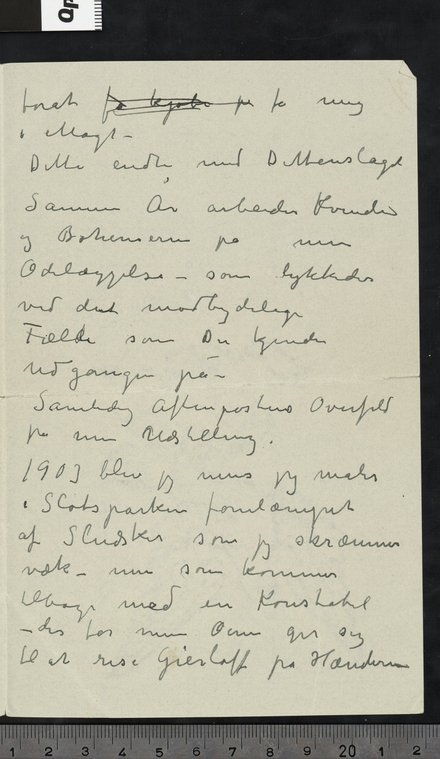 forat få kjøbe på få mig
i Magt –
Dette endte med Dettenslaget
Samme År arbeider Kvinden
og Bohemerne på min
Ødelæggelse – som lykkedes
ved den modbydelige
Fælde som Du kjender
udgangen på –
Samtidig Aftenpostens Overfald
på min Udstilling.
1903 blev jeg mens jeg maler
i Slotsparken fornærmet
af Sludsker som jeg skræmmer
væk – men som kommer
tilbage med en Konstabel
– der for mine Øine gir sig
til at rise Gierløff på Hænderne